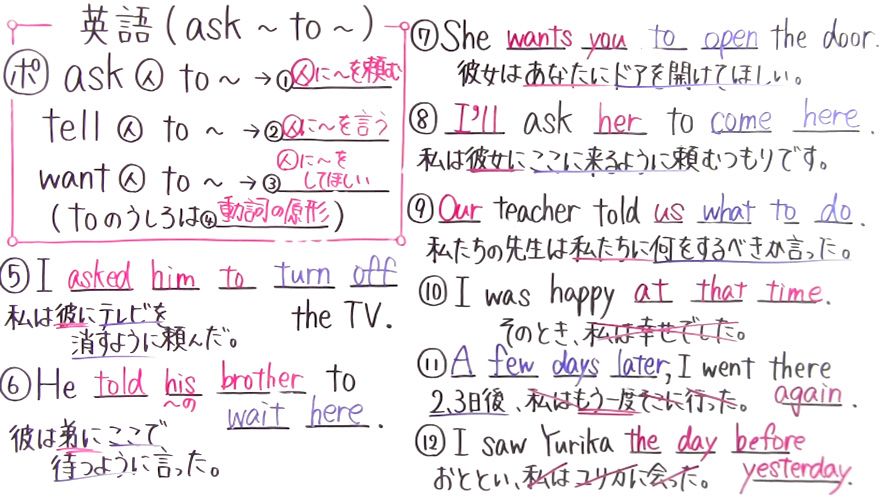 英語(ask ～ to ～)
ポ ask 人 to ～ → ①人に～を頼む
tell 人 to ～ → ②人に～を言う
want 人 to ～ → ③人に～を
してほしい
(toのうしろは④動詞の原形)
⑤I asked him to turn off
the TV.
私は彼にテレビを
消すように頼んだ。
⑥He told his brother to
～の
wait here.
彼は弟にここで
待つように言った。
⑦She wants you to open the door.
彼女はあなたにドアを開けてほしい。
⑧I'll ask her to come here.
私は彼女にここに来るように頼むつもりです。
⑨Our teacher told us what to do.
私たちの先生は私たちに何をするべきか言った。
⑩I was happy at that time.
そのとき、私は幸せでした。
⑪A few days later, I went there
again.
2,3日後、私はもう一度そこに行った。
⑫I saw Yurika the day before
yesterday.
おととい、私はユリカに会った。